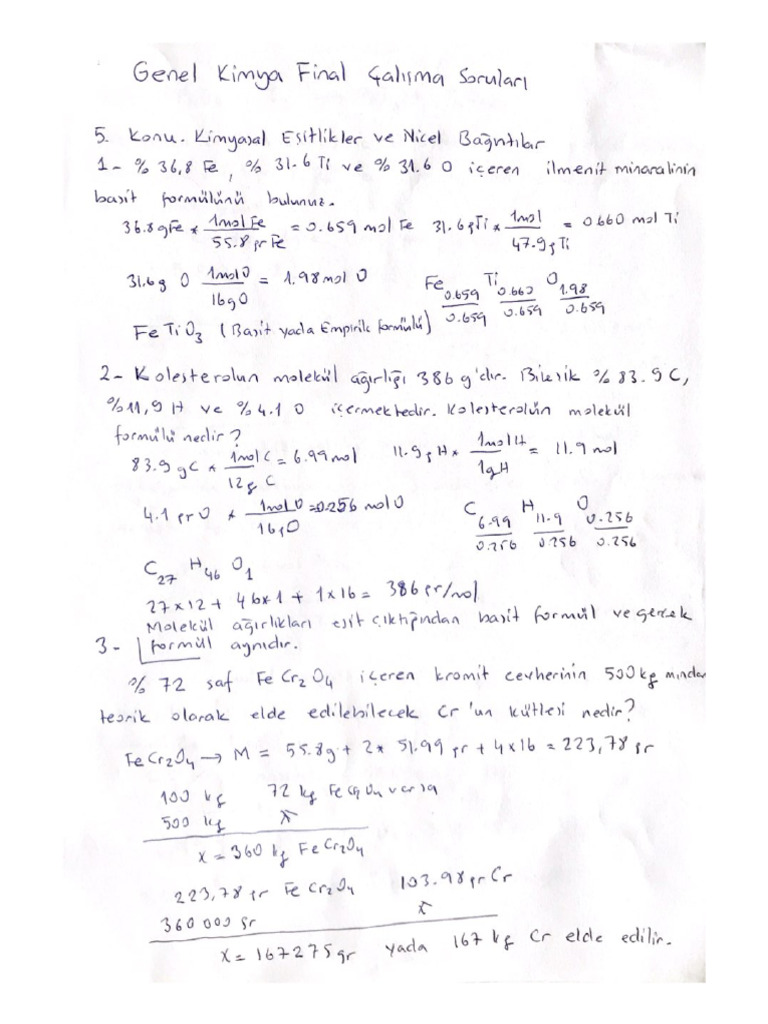 Genel Kimya Final Çalışma Soruları
5. Konu. Kimyasal Eşitlikler ve Nicel Bağıntılar
1- % 36,8 Fe, % 31.6 Ti ve % 31.6 O içeren ilmenit minaralinin
basit formülünü bulunuz.
36.8gFe * 1mol Fe / 55.8 gr Fe = 0.659 mol Fe 31.6gTi * 1mol / 47.9gTi = 0.660 mol Ti
31.6g O 1molO / 16gO = 1.98mol O Fe 0.659/0.659 Ti 0.660/0.659 O 1.98/0.659
FeTiO3 (Basit yada Empirik formülü)
2- Kolesterolun molekül ağırlığı 386 g'dır. Bileşik % 83.9 C,
%11,9 H ve % 4.1 O içermektedir. Kolesterolün molekül
formülü nedir?
83.9 gC * 1molC / 12g C = 6.99mol 11.9gH * 1molH / 1gH = 11.9 mol
4.1 grO * 1molO / 16gO = 0.256 molO C 6.99/0.256 H 11.9/0.256 O 0.256/0.256
C27 H46 O1
27x12 + 46x1 + 1x16 = 386 gr/mol
Molekül ağırlıkları eşit çıktığından basit formül ve gerçek
formül aynıdır.
3-
% 72 saf FeCr2O4 içeren kromit cevherinin 500kg mından
teorik olarak elde edilebilecek Cr'un kütlesi nedir?
FeCr2O4 → M = 55.8g + 2* 51.99 gr + 4x16 = 223,78 gr
100 kg 72 kg FeCr2O4 varsa
500 kg x
x = 360 kg FeCr2O4
223,78 gr FeCr2O4 103.98gr Cr
360 000 gr x
x= 167275gr yada 167 kg Cr elde edilir.